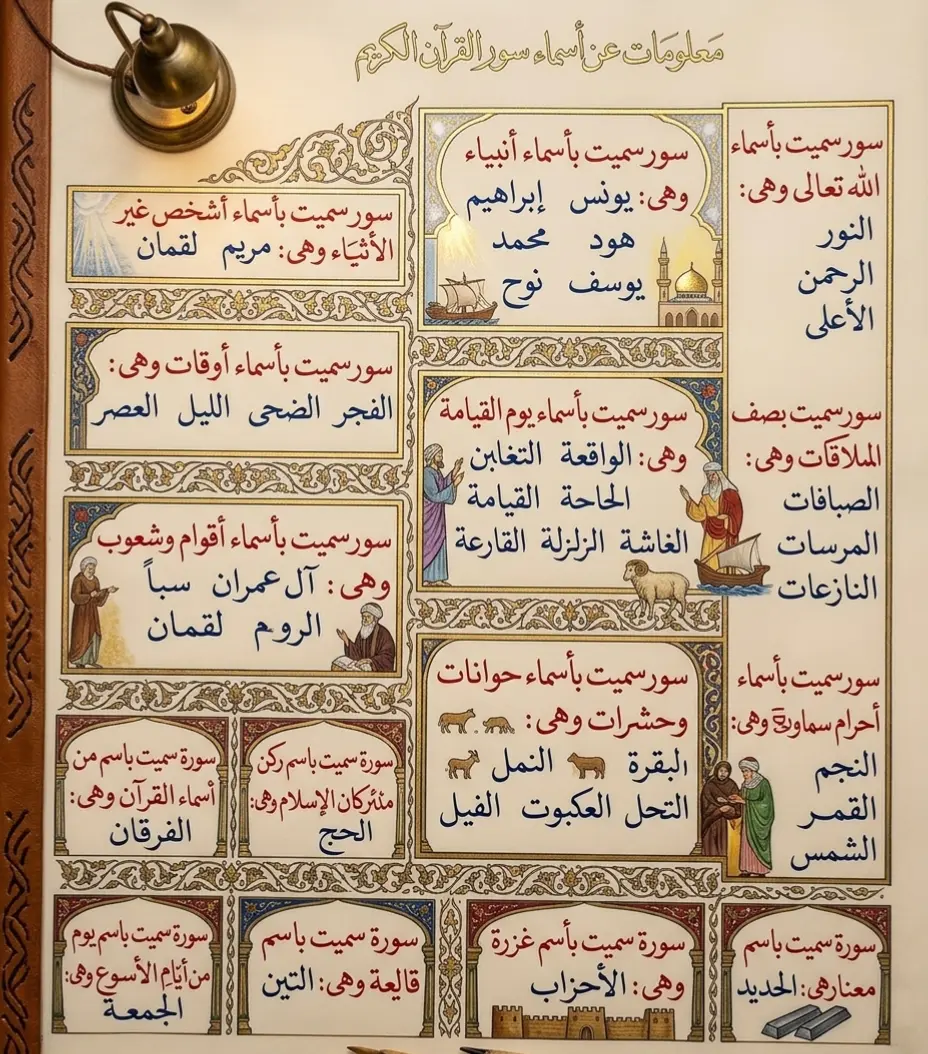 معلومات عن أسماء سور القرآن الكريم
سور سميت بأسماء
الله تعالى وهى:
النور
الرحمن
الأعلى
سور سميت بصف
الملاقات وهى:
الصبافات
المرسات
النازعات
سور سميت بأسماء
أحرام سماوية وهى:
النجم
القمر
الشمس
سور سميت بأسماء أنبياء
وهى: يونس إبراهيم
هود محمد
يوسف نوح
سور سميت بأسماء يوم القيامة
وهى: الواقعة التغابن
الحاحة القيامة
الغاشة الزلزلة القارعة
سور سميت بأسماء حوانات
وحشرات وهى:
البقرة النمل
التحل العكبوت الفيل
سور سميت بأسماء أشخص غير
الأثياء وهى: مريم لقمان
سور سميت بأسماء أوقات وهى:
الفجر الضحى الليل العصر
سور سميت بأسماء أقوام وشعوب
وهى: آل عمران سبأ
الروم لقمان
سورة سميت باسم ركن
الإسلام وهى:
الحج
سورة سميت باسم من
أسماء القرآن وهى:
الفرقان
سورة سميت باسم
معنارهى: الحديد
سورة سميت بأسم غزرة
وهى: الأحزاب
سورة سميت باسم
قالعة وهى: التين
سورة سميت باسم يوم
من أيام الأسوع وهى:
الجمعة